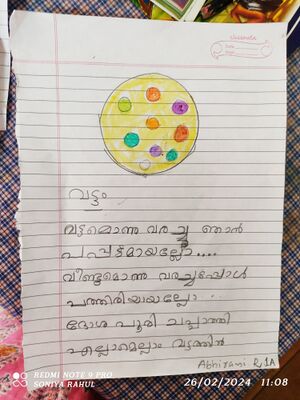 classmate
Date
Page
വട്ടം
വട്ടമൊന്നു വരച്ചു ഞാൻ
പപ്പടമായല്ലോ....
വീണ്ടുമൊന്നു വരച്ചപ്പോൾ
പത്തിരിയായല്ലോ..
ദോശ പൂരി ചപ്പാത്തി
എല്ലാമെല്ലാം വട്ടത്തിൽ
Abhirami R, 1A
REDMI NOTE 9 PRO
SONIYA RAHUL
26/02/2024 11:08